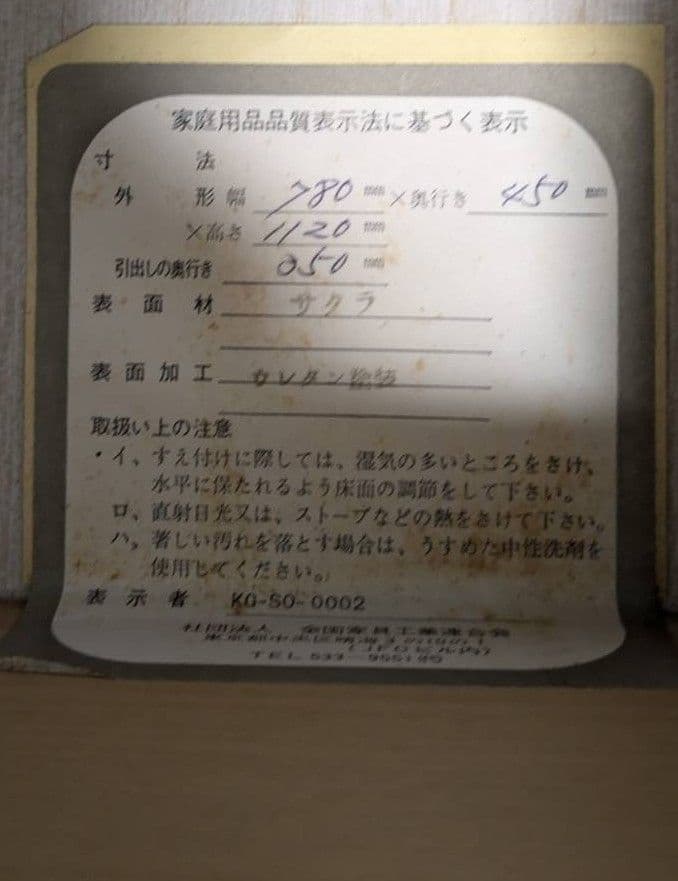 家庭用品品質表示法に基づく表示
寸法
外形幅 780 mm ×奥行き 450 mm
×高さ 1120 mm
引出しの奥行き 350 mm
表面材 サクラ
表面加工 ウレタン塗装
取扱い上の注意
・イ、すえ付けに際しては、湿気の多いところをさけ、
水平に保たれるよう床面の調節をして下さい。
ロ、直射日光又は、ストーブなどの熱をさけて下さい。
ハ、著しい汚れを落とす場合は、うすめた中性洗剤を
使用してください。
表示者 KO-SO-0002
社団法人 全国家具工業連合会
東京都中央区晴海3の10の1
(JFOビル内)
TEL 533